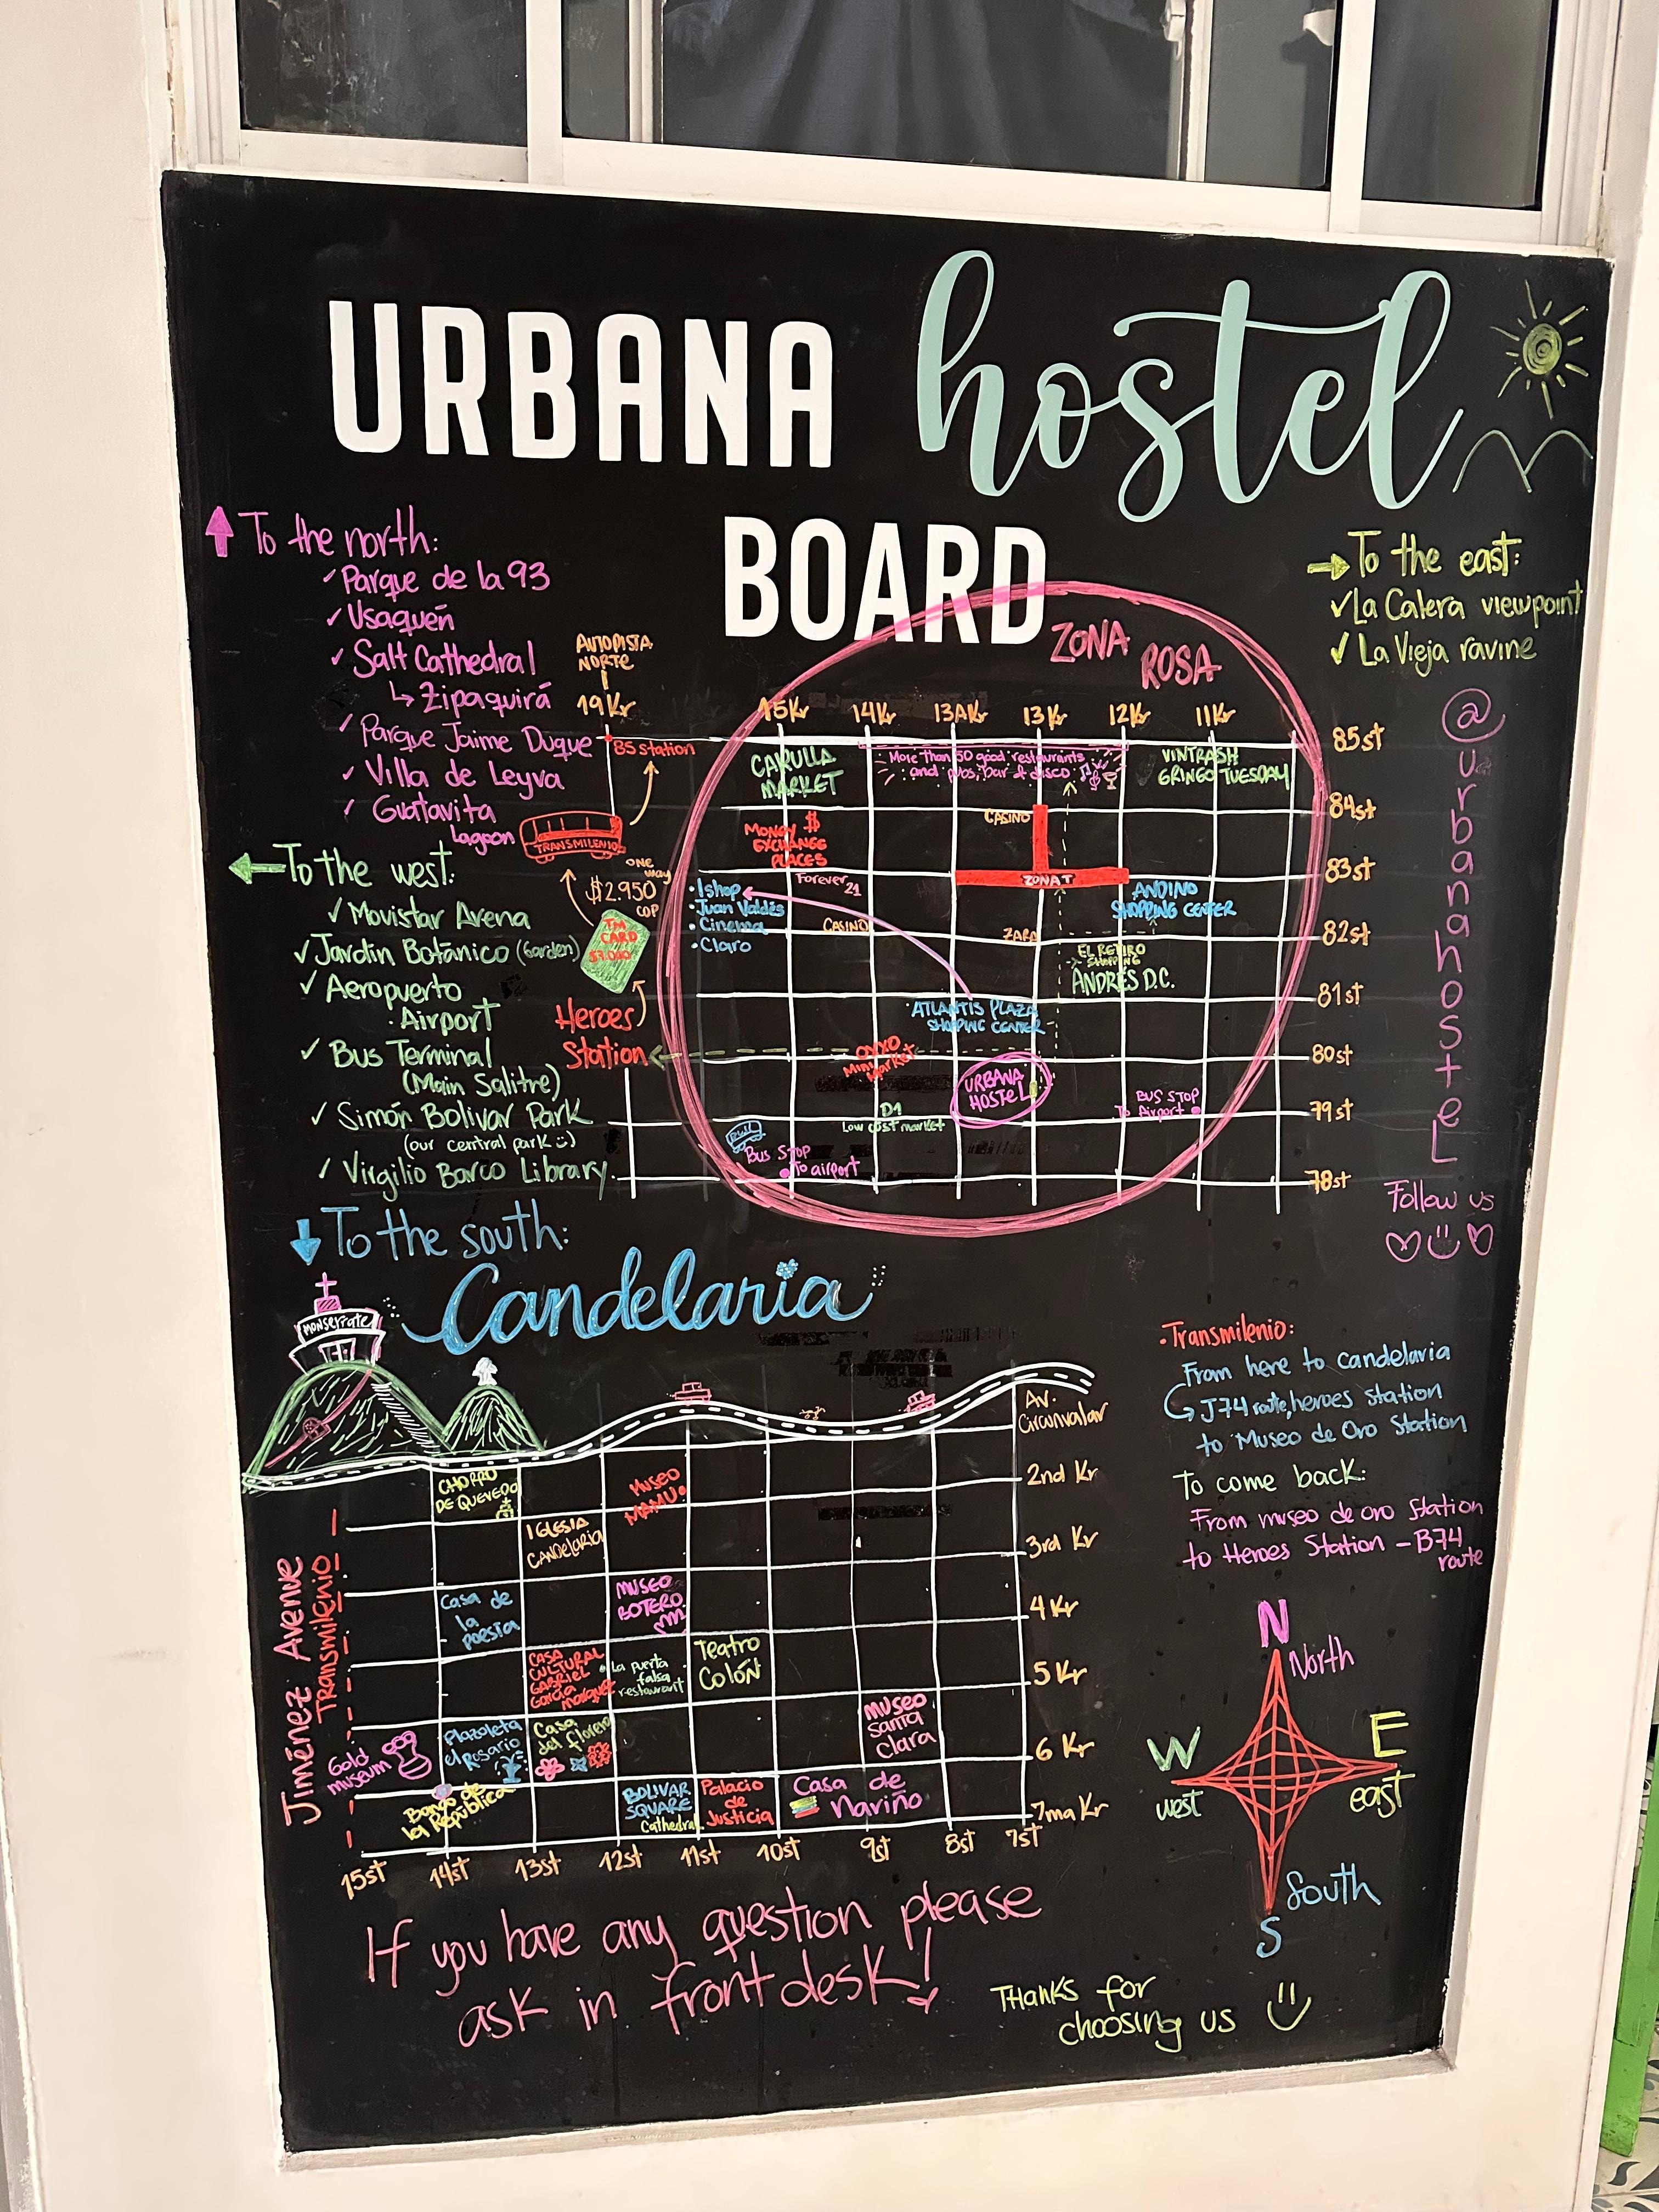 URBANA hostel
BOARD
To the north:
Parque de la 93
Usaquén
Salt Cathedral
Zipaquirá
Parque Jaime Duque
Villa de Leyva
Guatavita
Lagoon
To the west:
Movistar Arena
Jardin Botánico (Garden)
Aeropuerto
Airport
Bus Terminal
(Main Salitre)
Simón Bolivar Park
(our central park :))
Virgilio Barco Library
To the east:
La Calera viewpoint
La Vieja ravine
AUTOPISTA
NORTE
19Kr
85 station
TRANSMILENIO
ONE
way
$2.950
COP
TM
CARD
$7.000
Heroes
Station
ZONA
ROSA
15Kr 14Kr 13AKr 13Kr 12Kr 11Kr
85st
84st
83st
82st
81st
80st
79st
78st
CARULLA
MARKET
More than 50 good restaurants
and pubs, bar & disco
VINTRASH
GRINGO TUESDAY
MONEY $
EXCHANGE
PLACES
CASINO
ZONA T
Forever 21
• Ishop
• Juan Valdés
• Cinema
• Claro
ANDINO
SHOPPING CENTER
CASINO
ZARA
EL RETIRO
SHOPPING
ANDRÉS D.C.
ATLANTIS PLAZA
SHOPPING CENTER
OXXO
Mini
Market
URBANA
HOSTEL
BUS STOP
To Airport
D1
Low cost market
BUS
Bus STOP
To airport
@urbanahostel
Follow us
To the south:
Candelaria
MONSERRATE
Av.
Circunvalar
2nd Kr
3rd Kr
4 Kr
5 Kr
6 Kr
7ma Kr
Jiménez Avenue
TRansmilenio
CHORRO
DE QUEVEDO
MUSEO
MAMU
IGLESIA
CANDELARIA
Casa de
la
poesía
MUSEO
BOTERO
CASA
CULTURAL
GABRIEL
García
Marquez
La puerta
falsa
restaurant
Teatro
Colón
Gold
museum
Plazoleta
el Rosario
Casa
del florero
MUSEO
Santa
Clara
Banco de
la República
BOLIVAR
SQUARE
Cathedral
Palacio
de
Justicia
Casa de
Nariño
15st 14st 13st 12st 11st 10st 9st 8st 7st
• Transmilenio:
From here to candelaria
J74 route, heroes station
to Museo de Oro Station
To come back:
From museo de oro Station
to Heroes Station - B74
route
N
North
W
west
E
east
South
S
If you have any question please
ask in front desk!
THANKS for
choosing us